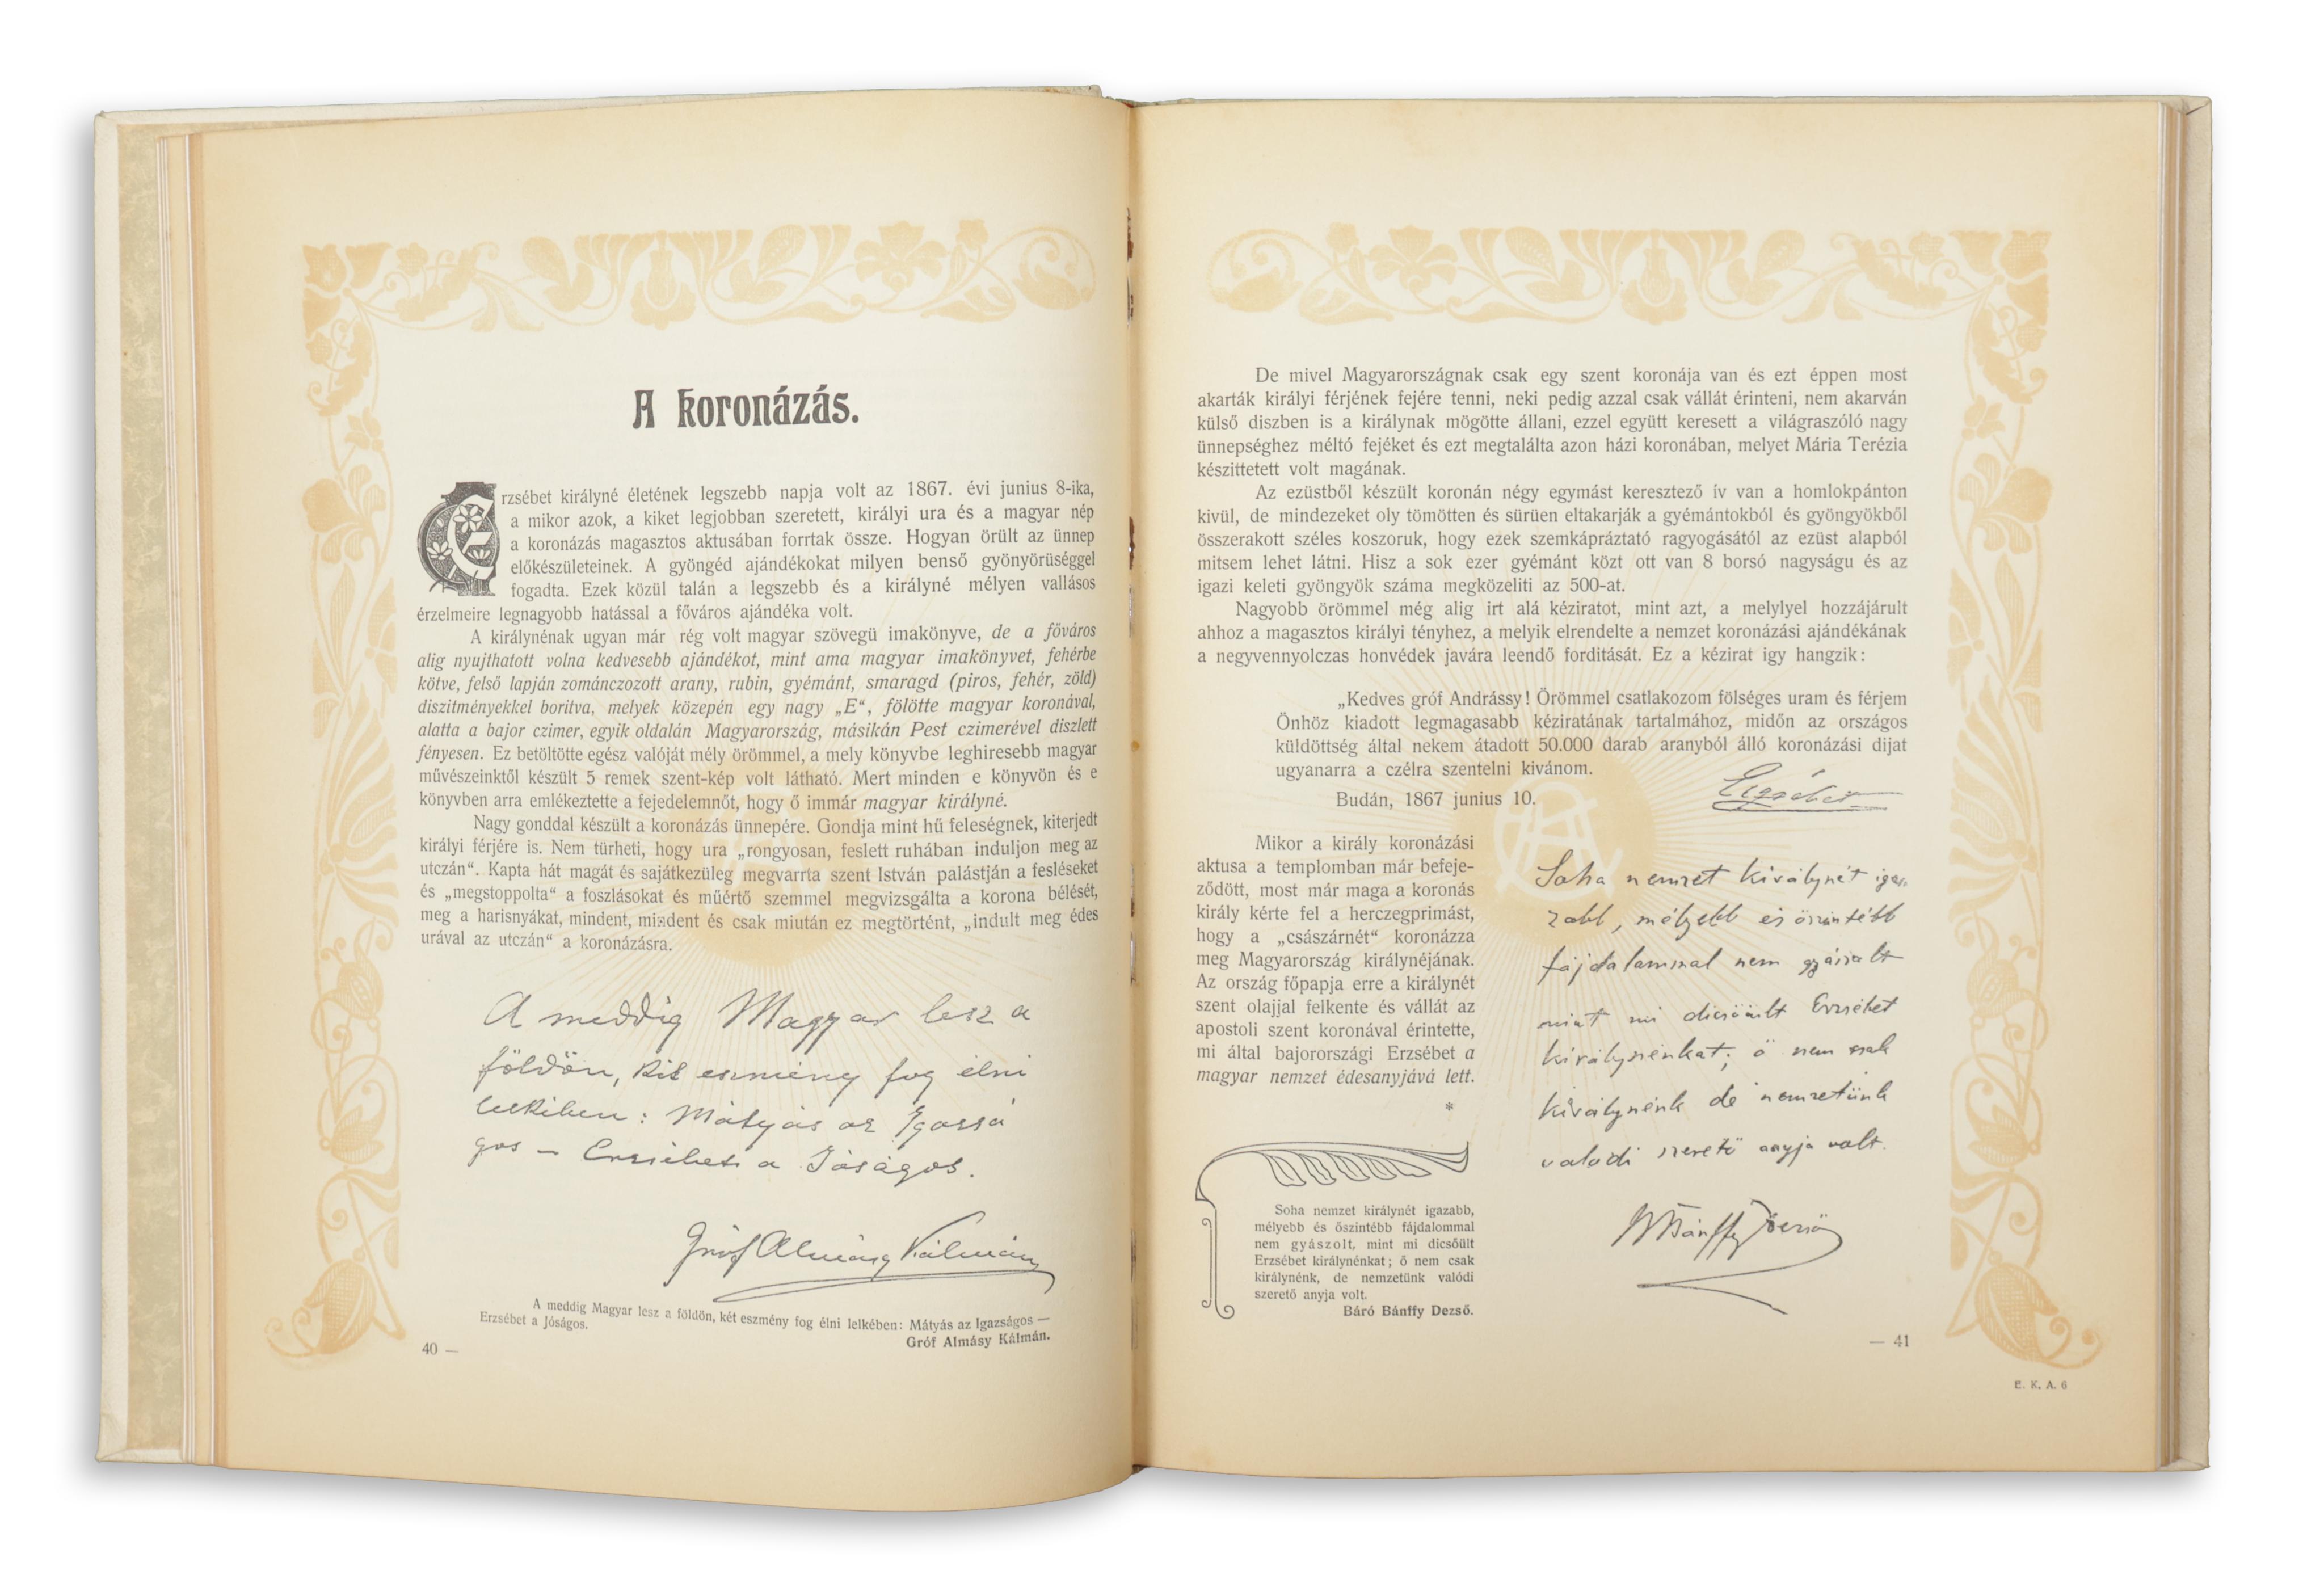 A koronázás.
Erzsébet királyné életének legszebb napja volt az 1867. évi junius 8-ika,
a mikor azok, a kiket legjobban szeretett, királyi ura és a magyar nép
a koronázás magasztos aktusában forrtak össze. Hogyan örült az ünnep
előkészületeinek. A gyöngéd ajándékokat milyen benső gyönyörüséggel
fogadta. Ezek közül talán a legszebb és a királyné mélyen vallásos
érzelmeire legnagyobb hatással a főváros ajándéka volt.
A királynénak ugyan már rég volt magyar szövegü imakönyve, de a főváros
alig nyujthatott volna kedvesebb ajándékot, mint ama magyar imakönyvet, fehérbe
kötve, felső lapján zománczozott arany, rubin, gyémánt, smaragd (piros, fehér, zöld)
diszitményekkel boritva, melyek közepén egy nagy „E“, fölötte magyar koronával,
alatta a bajor czimer, egyik oldalán Magyarország, másikán Pest czimerével diszlett
fényesen. Ez betöltötte egész valóját mély örömmel, a mely könyvbe leghiresebb magyar
művészeinktől készült 5 remek szent-kép volt látható. Mert minden e könyvön és e
könyvben arra emlékeztette a fejedelemnőt, hogy ő immár magyar királyné.
Nagy gonddal készült a koronázás ünnepére. Gondja mint hű feleségnek, kiterjedt
királyi férjére is. Nem türheti, hogy ura „rongyosan, feslett ruhában induljon meg az
utczán“. Kapta hát magát és sajátkezüleg megvarrta szent István palástján a fesléseket
és „megstoppolta“ a foszlásokat és műértő szemmel megvizsgálta a korona bélését,
meg a harisnyákat, mindent, mindent és csak miután ez megtörtént, „indult meg édes
urával az utczán“ a koronázásra.
A meddig Magyar lesz a
földön, két eszmény fog élni
lelkében: Mátyás az Igazsá
gos – Erzsébet a Jóságos.
Gróf Almásy Kálmán
A meddig Magyar lesz a földön, két eszmény fog élni lelkében: Mátyás az Igazságos —
Erzsébet a Jóságos.
Gróf Almásy Kálmán.
40 —
De mivel Magyarországnak csak egy szent koronája van és ezt éppen most
akarták királyi férjének fejére tenni, neki pedig azzal csak vállát érinteni, nem akarván
külső diszben is a királynak mögötte állani, ezzel együtt keresett a világraszóló nagy
ünnepséghez méltó fejéket és ezt megtalálta azon házi koronában, melyet Mária Terézia
készittetett volt magának.
Az ezüstből készült koronán négy egymást keresztező ív van a homlokpánton
kivül, de mindezeket oly tömötten és sürüen eltakarják a gyémántokból és gyöngyökből
összerakott széles koszoruk, hogy ezek szemkápráztató ragyogásától az ezüst alapból
mitsem lehet látni. Hisz a sok ezer gyémánt közt ott van 8 borsó nagyságu és az
igazi keleti gyöngyök száma megközeliti az 500-at.
Nagyobb örömmel még alig irt alá kéziratot, mint azt, a melylyel hozzájárult
ahhoz a magasztos királyi tényhez, a melyik elrendelte a nemzet koronázási ajándékának
a negyvennyolczas honvédek javára leendő forditását. Ez a kézirat igy hangzik:
„Kedves gróf Andrássy! Örömmel csatlakozom fölséges uram és férjem
Önhöz kiadott legmagasabb kéziratának tartalmához, midőn az országos
küldöttség által nekem átadott 50.000 darab aranyból álló koronázási dijat
ugyanarra a czélra szentelni kivánom.
Budán, 1867 junius 10.
Erzsébet
Mikor a király koronázási
aktusa a templomban már befeje-
ződött, most már maga a koronás
király kérte fel a herczegprimást,
hogy a „császárnét“ koronázza
meg Magyarország királynéjának.
Az ország főpapja erre a királynét
szent olajjal felkente és vállát az
apostoli szent koronával érintette,
mi által bajorországi Erzsébet a
magyar nemzet édesanyjává lett.
*
Soha nemzet királynét igaz
zabb, mélyebb és őszintébb
fájdalommal nem gyászolt
mint mi dicsőült Erzsébet
királynénkat; ő nem csak
királynénk de nemzetünk
valódi szerető anyja volt.
Bánffy Dezső
Soha nemzet királynét igazabb,
mélyebb és őszintébb fájdalommal
nem gyászolt, mint mi dicsőült
Erzsébet királynénkat; ő nem csak
királynénk, de nemzetünk valódi
szerető anyja volt.
Báró Bánffy Dezső.
— 41
E. K. A. 6